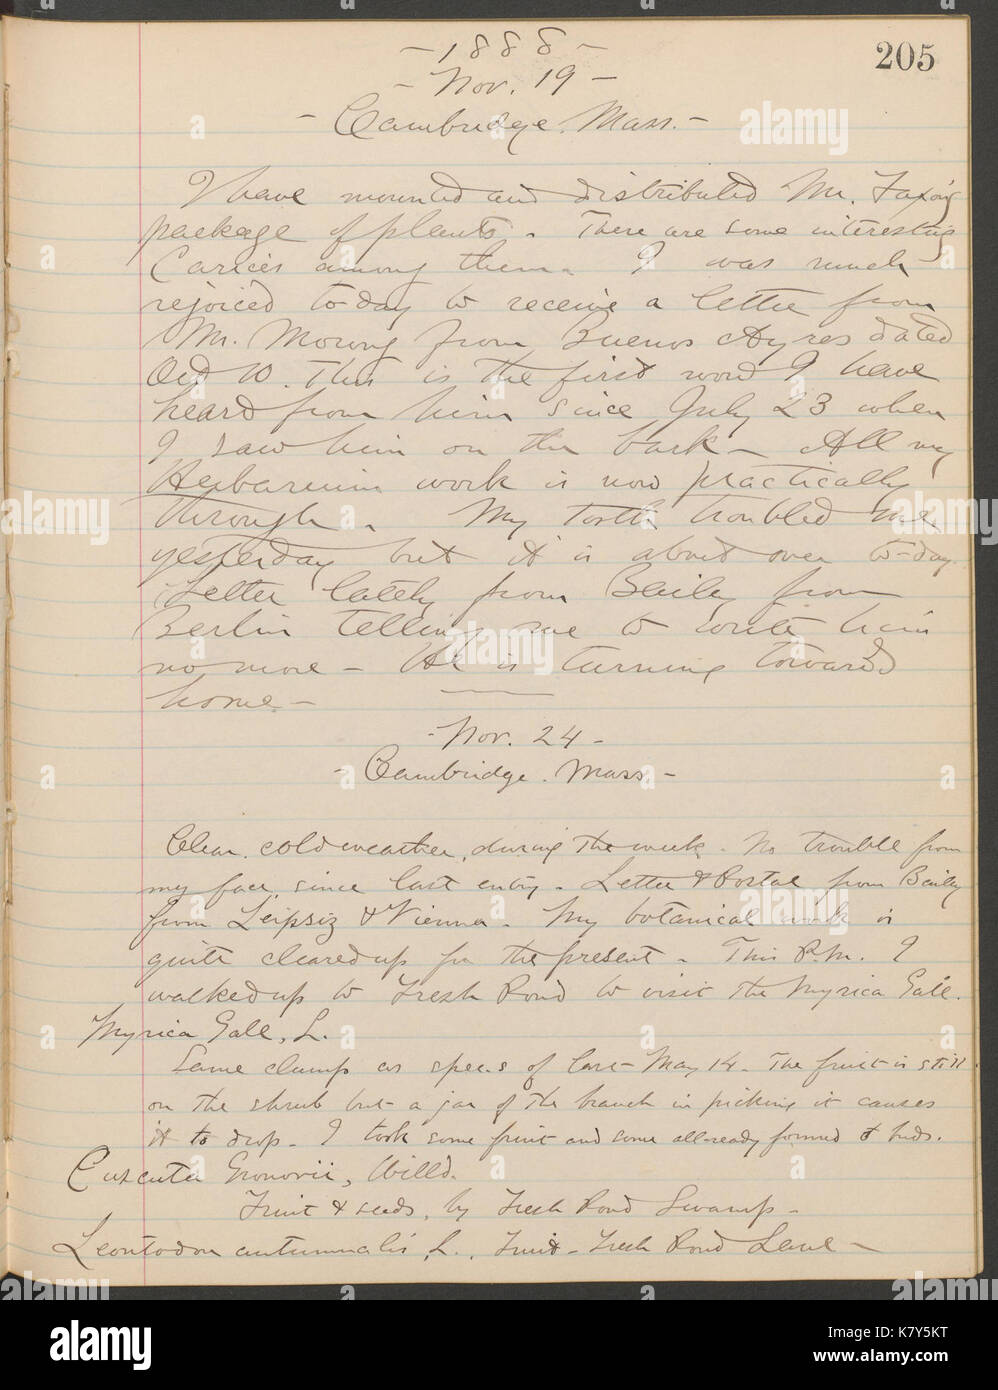 205
- 1888 -
- Nov. 19 -
- Cambridge. Mass. -
I have mounted and distributed Mr. Faxon's
package of plants. There are some interesting
Carices among them. I was much
rejoiced to-day to receive a letter from
Mr. Morong from Buenos Ayres dated
10. This is the first word I have
heard from him since July 23 when
I saw him on the bark - All my
Herbarium work is now practically
through. My tooth troubled me
yesterday but it is about over to-day.
Letter lately from Bailey from
Berlin telling me to write him
no more - He is turning towards
home -
- Nov. 24 -
- Cambridge. Mass. -
Clear, cold weather, during the week. No trouble from
my face since last entry - Letter & Postal from Bailey
from Leipsiz & Vienna. My botanical work is
quite cleared up for the present - This P.M. I
walked up to Fresh Pond to visit the Myrica Gale.
Myrica Gale, L.
Same clump as specs of last May 14. The fruit is still
on the shrub but a jar of the branch in picking it causes
it to drop - I took some fruit and some all-ready formed buds.
Cuscuta Gronovii, Willd.
Fruit & seeds, by Fresh Pond Swamp -
Leontodon autumnalis, L., Fruit - Fresh Pond Lane -
alamy
K7Y5KT
www.alamy.com